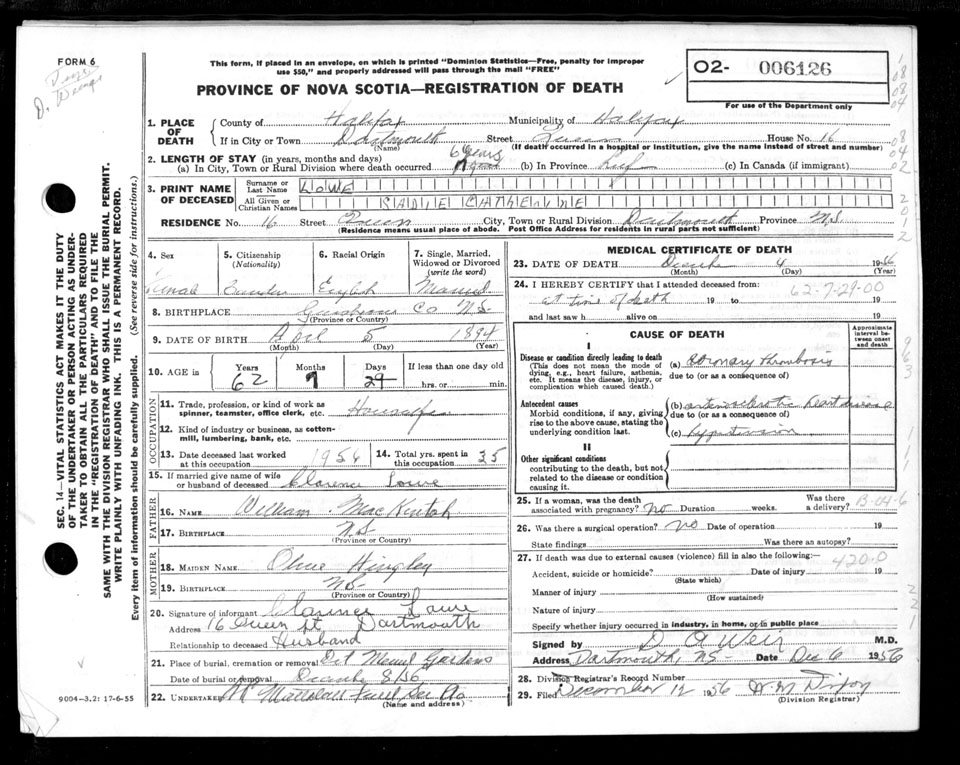 FORM 6
This form, if placed in an envelope, on which is printed "Dominion Statistics—Free, penalty for improper
use $50," and properly addressed will pass through the mail "FREE"
PROVINCE OF NOVA SCOTIA—REGISTRATION OF DEATH
O2- 006126
For use of the Department only
1. PLACE OF DEATH
County of Halifax Municipality of Halifax
If in City or Town Dartmouth Street Queen House No. 16
(Name) (If death occurred in a hospital or institution, give the name instead of street and number)
2. LENGTH OF STAY (in years, months and days)
(a) In City, Town or Rural Division where death occurred 6 years (b) In Province Life (c) In Canada (if immigrant)
3. PRINT NAME OF DECEASED
Surname or Last Name LOWE
All Given or Christian Names SADIE CATHERINE
RESIDENCE No. 16 Street Queen City, Town or Rural Division Dartmouth Province N.S.
(Residence means usual place of abode. Post Office Address for residents in rural parts not sufficient)
4. Sex
5. Citizenship (Nationality)
6. Racial Origin
7. Single, Married, Widowed or Divorced (write the word)
Female Canadian English Married
8. BIRTHPLACE Guysboro Co N.S.
(Province or Country)
9. DATE OF BIRTH April 5 1894
(Month) (Day) (Year)
10. AGE in
Years Months Days If less than one day old
62 7 29 hrs. or min.
OCCUPATION
11. Trade, profession, or kind of work as spinner, teamster, office clerk, etc. Housewife
12. Kind of industry or business, as cotton-mill, lumbering, bank, etc.
13. Date deceased last worked at this occupation 1956
14. Total yrs. spent in this occupation 35
15. If married give name of wife or husband of deceased Clarence Lowe
FATHER
16. NAME William MacKintosh
17. BIRTHPLACE N.S.
(Province or Country)
MOTHER
18. MAIDEN NAME Olive Hingley
19. BIRTHPLACE N.S.
(Province or Country)
20. Signature of informant Clarence Lowe
Address 16 Queen St. Dartmouth
Relationship to deceased Husband
21. Place of burial, cremation or removal Meml Gardens
Date of burial or removal December 8/56
22. UNDERTAKER
(Name and address)
9004—3.2: 17-6-55
MEDICAL CERTIFICATE OF DEATH
23. DATE OF DEATH 4 1956
(Month) (Day) (Year)
24. I HEREBY CERTIFY that I attended deceased from:
62-7-29-00
at time of death 19 to 19
and last saw h alive on 19
CAUSE OF DEATH
Approximate interval between onset and death
I
Disease or condition directly leading to death
(This does not mean the mode of dying, e.g., heart failure, asthenia, etc. It means the disease, injury, or complication which caused death.)
(a) Coronary thrombosis
due to (or as a consequence of)
Antecedent causes
Morbid conditions, if any, giving rise to the above cause, stating the underlying condition last.
(b) arteriosclerotic heart disease
due to (or as a consequence of)
(c) hypertension
II
Other significant conditions
contributing to the death, but not related to the disease or condition causing it.
25. If a woman, was the death associated with pregnancy? no Duration weeks. Was there a delivery?
B-04-6
26. Was there a surgical operation? no Date of operation 19
State findings Was there an autopsy?
27. If death was due to external causes (violence) fill in also the following:
420.0
Accident, suicide or homicide? Date of injury 19
(State which)
Manner of injury
(How sustained)
Nature of injury
Specify whether injury occurred in industry, in home, or in public place
Signed by D A Weir M.D.
Address Dartmouth, N.S. Date Dec 6 1956
28. Division Registrar's Record Number
29. Filed December 12 1956
(Division Registrar)
SEC. 14—VITAL STATISTICS ACT MAKES IT THE DUTY
OF THE UNDERTAKER OR PERSON ACTING AS UNDER-
TAKER TO OBTAIN ALL THE PARTICULARS REQUIRED
IN THE "REGISTRATION OF DEATH" AND TO FILE THE
SAME WITH THE DIVISION REGISTRAR WHO SHALL ISSUE THE BURIAL PERMIT.
WRITE PLAINLY WITH UNFADING INK. THIS IS A PERMANENT RECORD.
Every item of information should be carefully supplied. (See reverse side for instructions.)